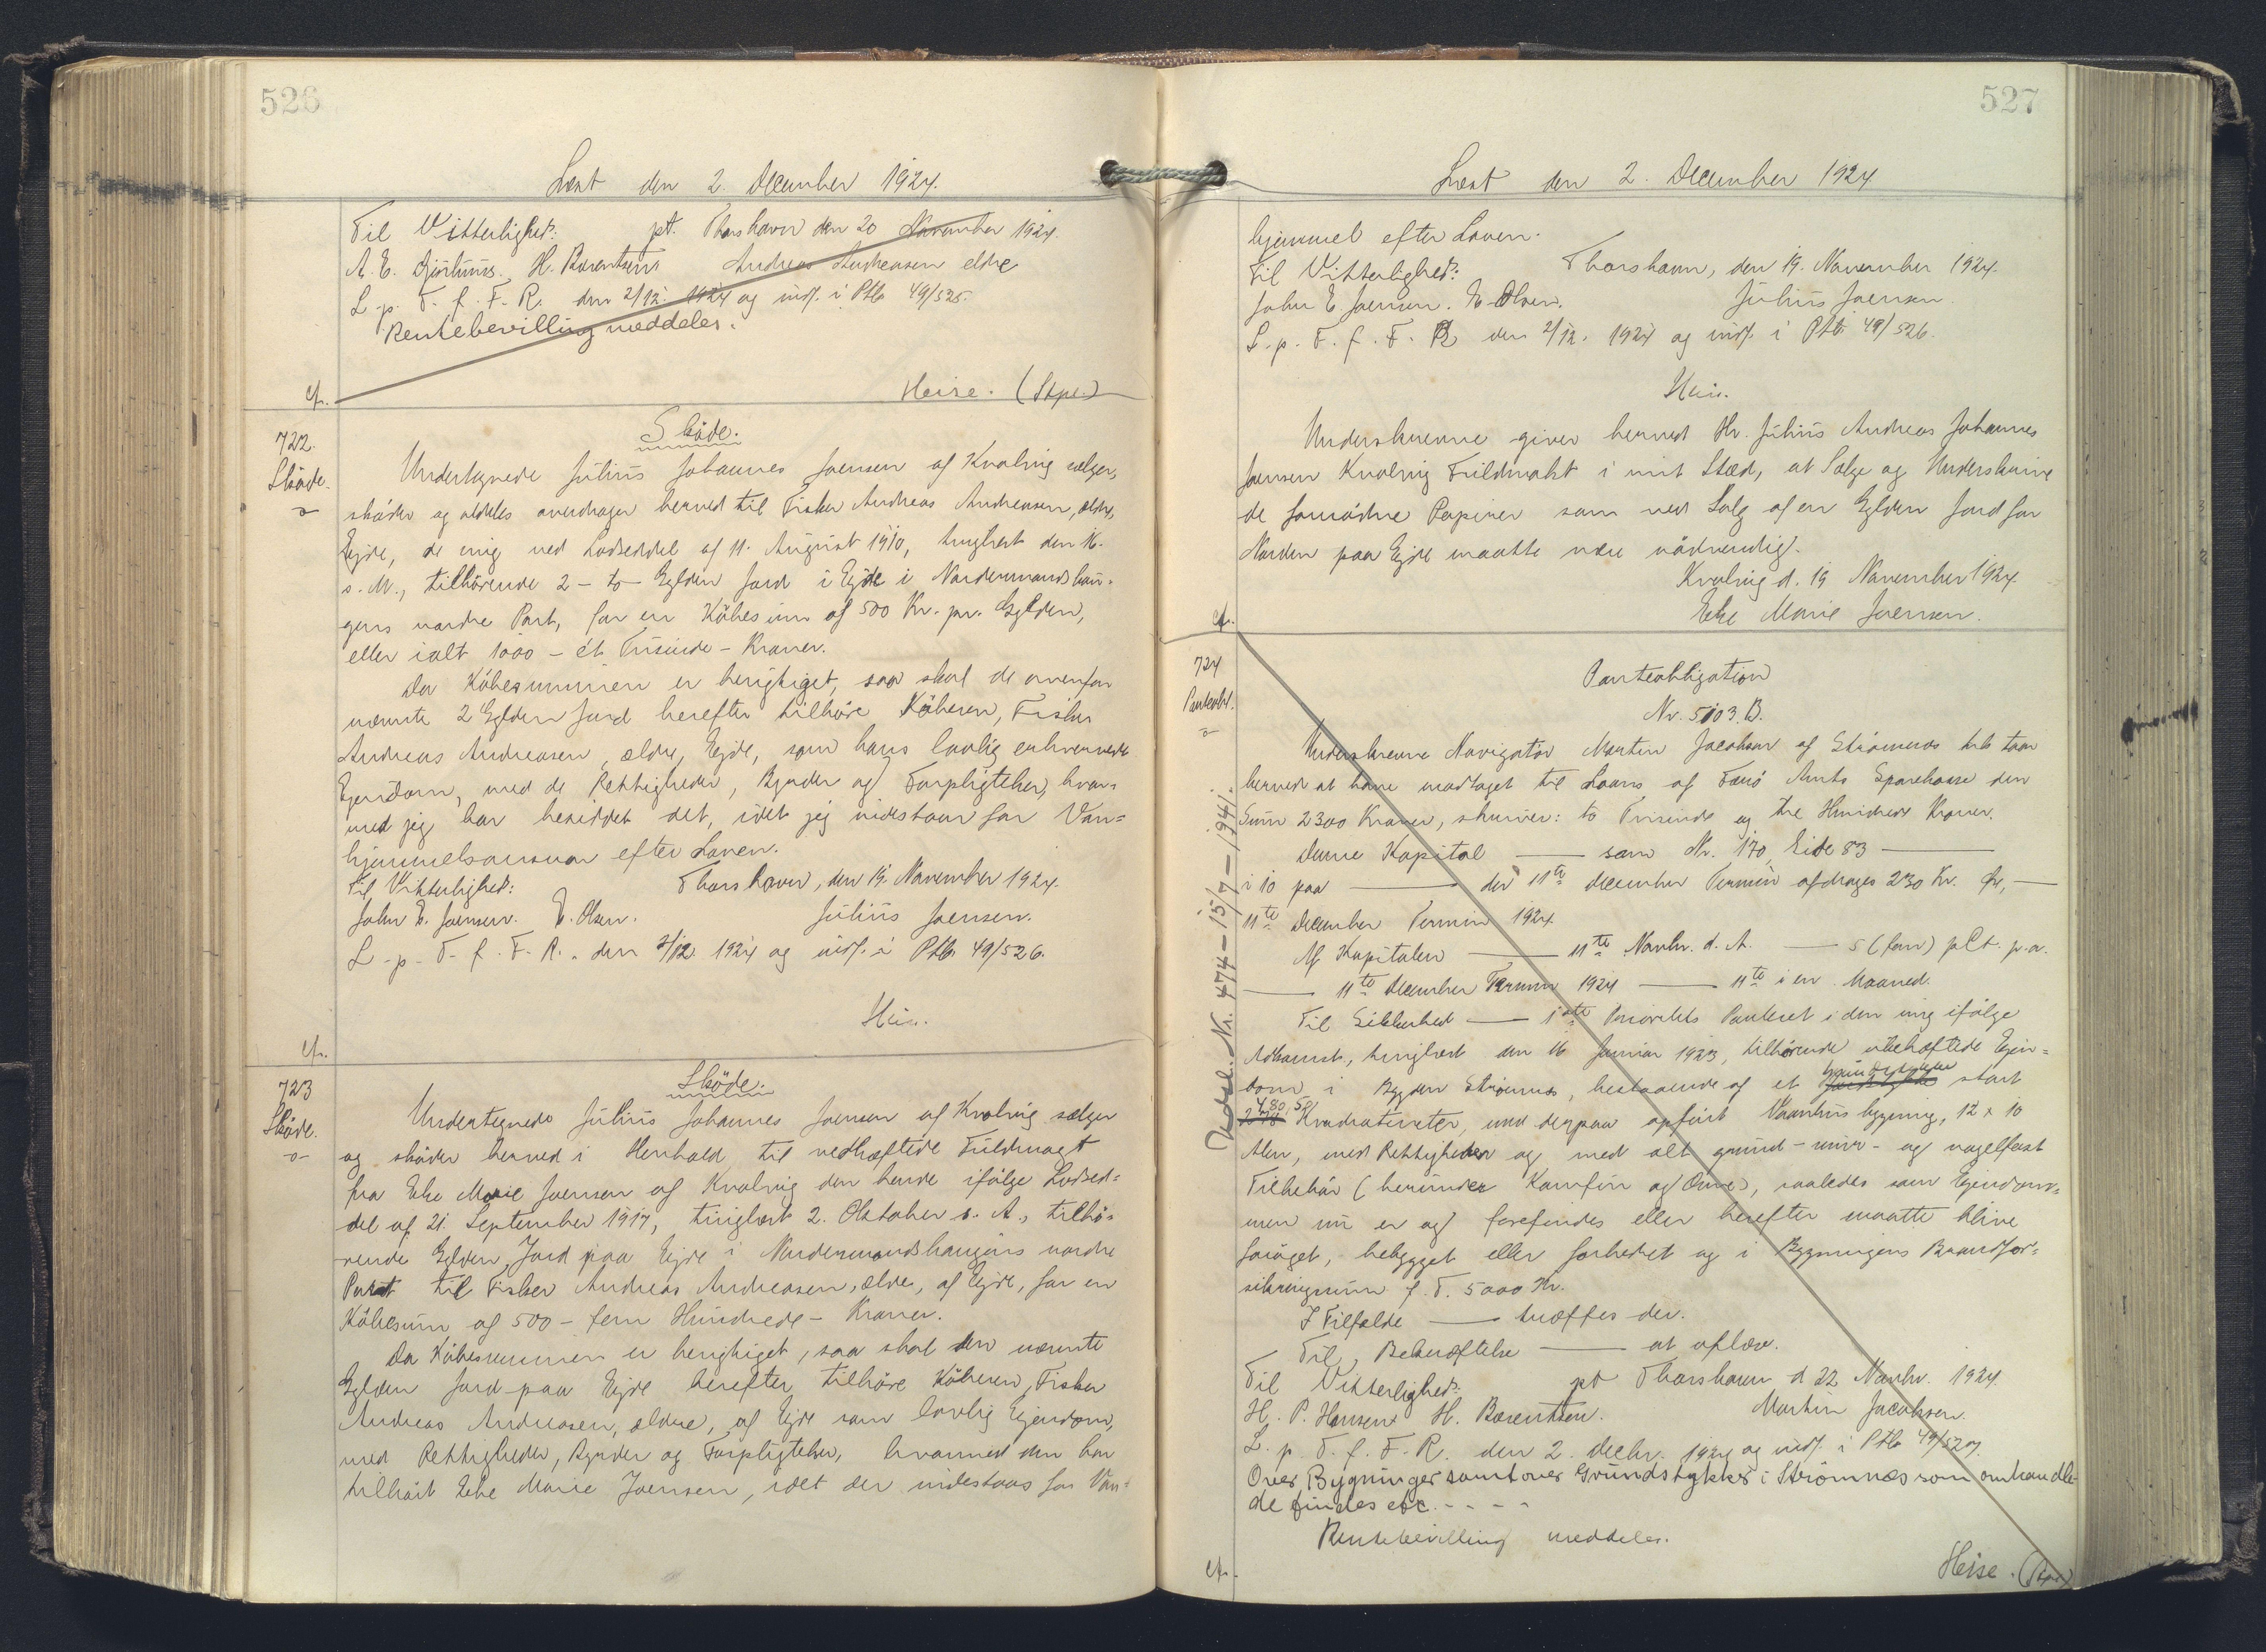 526
Læst den 2. December 1924.
Til Vitterlighed: pt. Thorshavn den 20 November 1924.
A. E. H. Barentsen Andreas Andreasen eldre
L. p. T. f. F. R. den 2/12. 1924 og indf. i Ptb 49/525.
Rentebevilling meddeles.
cfr. Heise. (Stpl.)
722. Sköde.
Sköde. Undertegnede Júlíus Johannes Joensen af Kvalvig sælger,
sköder og aldeles overdrager herved til Fisker Andreas Andreasen, ældre,
Ejde, de mig ved Lodseddel af 11. August 1910, tinglæst den 16.
s. M., tilhörende 2 - to - Gylden Jord i Ejde i Nordenmandshau-
gens nordre Part, for en Köbesum af 500 Kr. pr. Gylden,
eller ialt 1000 - ét Tusinde - Kroner.
Da Köbesummen er berigtiget, saa skal de ovenfor
nævnte 2 Gylden Jord herefter tilhöre Köberen, Fisker
Andreas Andreasen, ældre, Ejde, som hans lovlig erhvervede
Ejendom, med de Rettigheder, Byrder og Forpligtelser, hvor-
med jeg har besiddet det, idet jeg indestaar for Van=
hjemmelsansvar efter Loven.
Til Vitterlighed: Thorshavn, den 19. November 1924.
John E. Joensen. E. Olsen. Júlíus Joensen.
L. p. T. f. F. R. den 2/12 1924 og indf. i Ptb. 49/526.
Heise.
cfr.
723 Sköde.
Sköde. Undertegnede Júlíus Johannes Joensen af Kvalvig sælger
og sköder herved i Henhold til vedhæftede Fuldmagt
fra Else Marie Joensen af Kvalvig den hende ifölge Lodsed=
del af 21. September 1917, tinglæst 2. Oktober s. A., tilhö=
rende Gylden Jord paa Ejde i Nordenmandshaugens nordre
Part til Fisker Andreas Andreasen, ældre, af Ejde, for en
Köbesum af 500 - fem Hundrede - Kroner.
Da Köbesummen er berigtiget, saa skal den nævnte
Gylden Jord paa Ejde herefter tilhöre Köberen, Fisker
Andreas Andreasen, ældre, af Ejde som lovlig Ejendom,
med Rettigheder, Byrder og Forpligtelser, hvormed den har
tilhört Else Marie Joensen, idet der indestaas for Van=
527
Læst den 2. December 1924
hjemmel efter Loven.
Til Vitterlighed: Thorshavn, den 19. November 1924.
John E Joensen. E. Olsen. Júlíus Joensen.
L. p. T. f. F. R den 2/12. 1924 og indf. i Ptb. 49/526.
Heise.
Underskrevne giver herved Hr. Júlíus Andreas Johannes
Joensen Kvalvig Fuldmakt i mit Stæd, at Sælge og Underskrive
de fornödne Papirer som ved Salg af en Gylden Jord for
Norden paa Ejde maatte være nödvendig.
Kvalvig d. 19 November 1924
cfr. Else Marie Joensen.
724 Panteobligation
Panteobl. Nr. 5103. B.
Underskrevne Navigatör Martin Jacobsen af Strömnæs tilstaar
herved at have modtaget til Laans af Færö Amts Sparekasse den
Sum 2300 Kroner, skriver: to Tusinde og tre Hundrede Kroner.
Denne Kapital —— som Nr. 170, Side 83 ——
i 10 paa —— der 11te December Termin afdrages 230 Kr. 0re, —
11te December Termin 1924
Af Kapitalen —— 11te Novbr. d. A. —— 5 (fem) pCt. p. a.
—— 11te December Termin 1924 —— 11te i en Maaned.
Til Sikkerhed —— 1ste Prioritets Panteret i den mig ifölge
Adkomst, tinglæst den 16 Januar 1923, tilhörende ubehæftede Ejen=
dom i Bygden Strömnæs, bestaaende af et Jordstykke Grundstykke stort
480,50 Kvadratmeter, med derpaa opfört Vaanhus bygning, 12 x 10
Alen, med Rettigheder og med alt grund- mur- og nagelfast
Tilbehör (herunder Komfur og Ovne), saaledes som Ejendom=
men nu er og forefindes eller herefter maatte blive
foröget, bebygget eller forbedret og i Bygningens Brandfor=
sikringssum f. T. 5000 Kr.
I Tilfælde —— træffes der.
Til Bekræftelse —— at aflæse.
Til Vitterlighed: pt Thorshavn d 22 Novbr. 1924.
H. P. Hansen H. Barentsen. Martin Jacobsen.
L. p. T. f. F. R. den 2. Decbr. 1924 og indf. i Ptb 49/527.
Over Bygninger samt over Grundstykker i Strömnæs som omhandle-
de findes etc. - - - -
Rentebevilling meddeles.
cfr. Heise. (Stpl.)
Udsl. Nr. 474-15/7-1941.